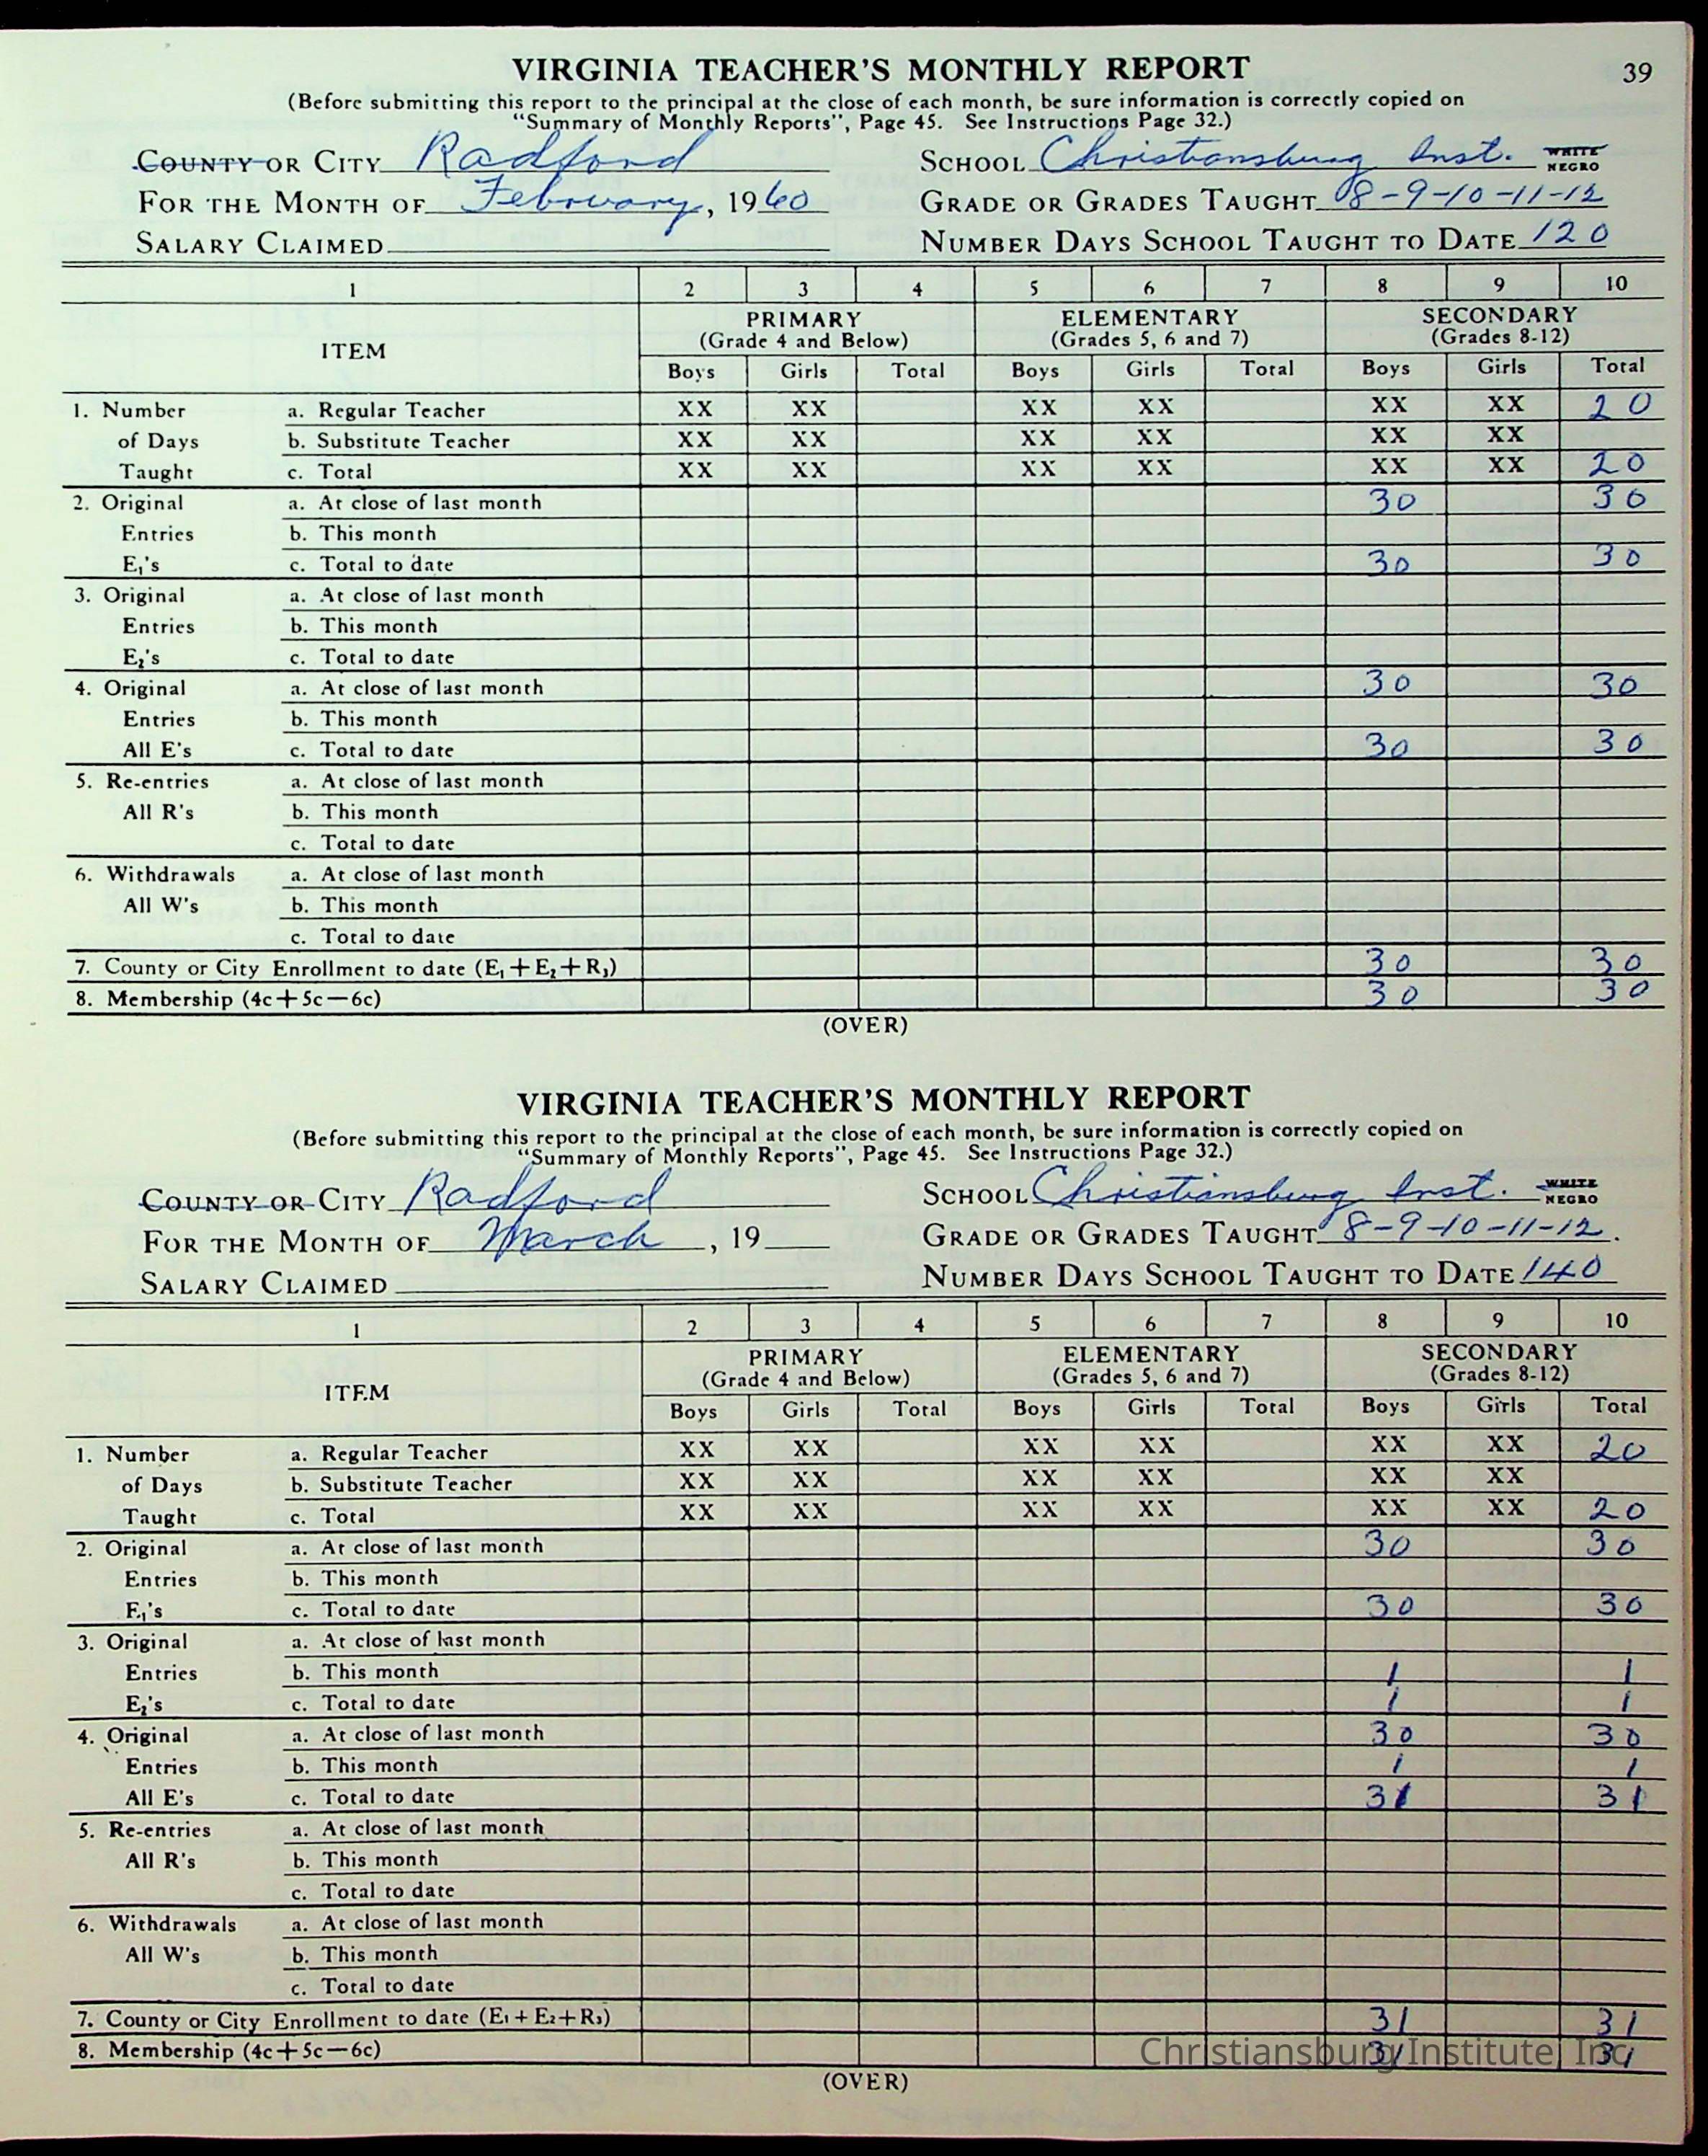 39
VIRGINIA TEACHER'S MONTHLY REPORT
(Before submitting this report to the principal at the close of each month, be sure information is correctly copied on
"Summary of Monthly Reports", Page 45. See Instructions Page 32.)
COUNTY OR CITY Radford SCHOOL Christiansburg Inst. WHITE NEGRO
FOR THE MONTH OF February, 1960 GRADE OR GRADES TAUGHT 8-9-10-11-12
SALARY CLAIMED NUMBER DAYS SCHOOL TAUGHT TO DATE 120
1 2 3 4 5 6 7 8 9 10
ITEM PRIMARY ELEMENTARY SECONDARY
(Grade 4 and Below) (Grades 5, 6 and 7) (Grades 8-12)
Boys Girls Total Boys Girls Total Boys Girls Total
1. Number a. Regular Teacher XX XX XX XX XX XX 20
of Days b. Substitute Teacher XX XX XX XX XX XX
Taught c. Total XX XX XX XX XX XX 20
2. Original a. At close of last month 30 30
Entries b. This month
E₁'s c. Total to date 30 30
3. Original a. At close of last month
Entries b. This month
E₂'s c. Total to date
4. Original a. At close of last month 30 30
Entries b. This month
All E's c. Total to date 30 30
5. Re-entries a. At close of last month
All R's b. This month
c. Total to date
6. Withdrawals a. At close of last month
All W's b. This month
c. Total to date
7. County or City Enrollment to date (E₁+E₂+R₃) 30 30
8. Membership (4c+5c—6c) 30 30
(OVER)
VIRGINIA TEACHER'S MONTHLY REPORT
(Before submitting this report to the principal at the close of each month, be sure information is correctly copied on
"Summary of Monthly Reports", Page 45. See Instructions Page 32.)
COUNTY OR CITY Radford SCHOOL Christiansburg Inst. WHITE NEGRO
FOR THE MONTH OF March, 19 GRADE OR GRADES TAUGHT 8-9-10-11-12.
SALARY CLAIMED NUMBER DAYS SCHOOL TAUGHT TO DATE 140
1 2 3 4 5 6 7 8 9 10
ITEM PRIMARY ELEMENTARY SECONDARY
(Grade 4 and Below) (Grades 5, 6 and 7) (Grades 8-12)
Boys Girls Total Boys Girls Total Boys Girls Total
1. Number a. Regular Teacher XX XX XX XX XX XX 20
of Days b. Substitute Teacher XX XX XX XX XX XX
Taught c. Total XX XX XX XX XX XX 20
2. Original a. At close of last month 30 30
Entries b. This month
E₁'s c. Total to date 30 30
3. Original a. At close of last month
Entries b. This month 1 1
E₂'s c. Total to date 1 1
4. Original a. At close of last month 30 30
Entries b. This month 1 1
All E's c. Total to date 31 31
5. Re-entries a. At close of last month
All R's b. This month
c. Total to date
6. Withdrawals a. At close of last month
All W's b. This month
c. Total to date
7. County or City Enrollment to date (E₁+E₂+R₃) 31 31
8. Membership (4c+5c—6c) 31 31
Christiansburg Institute, Inc
(OVER)